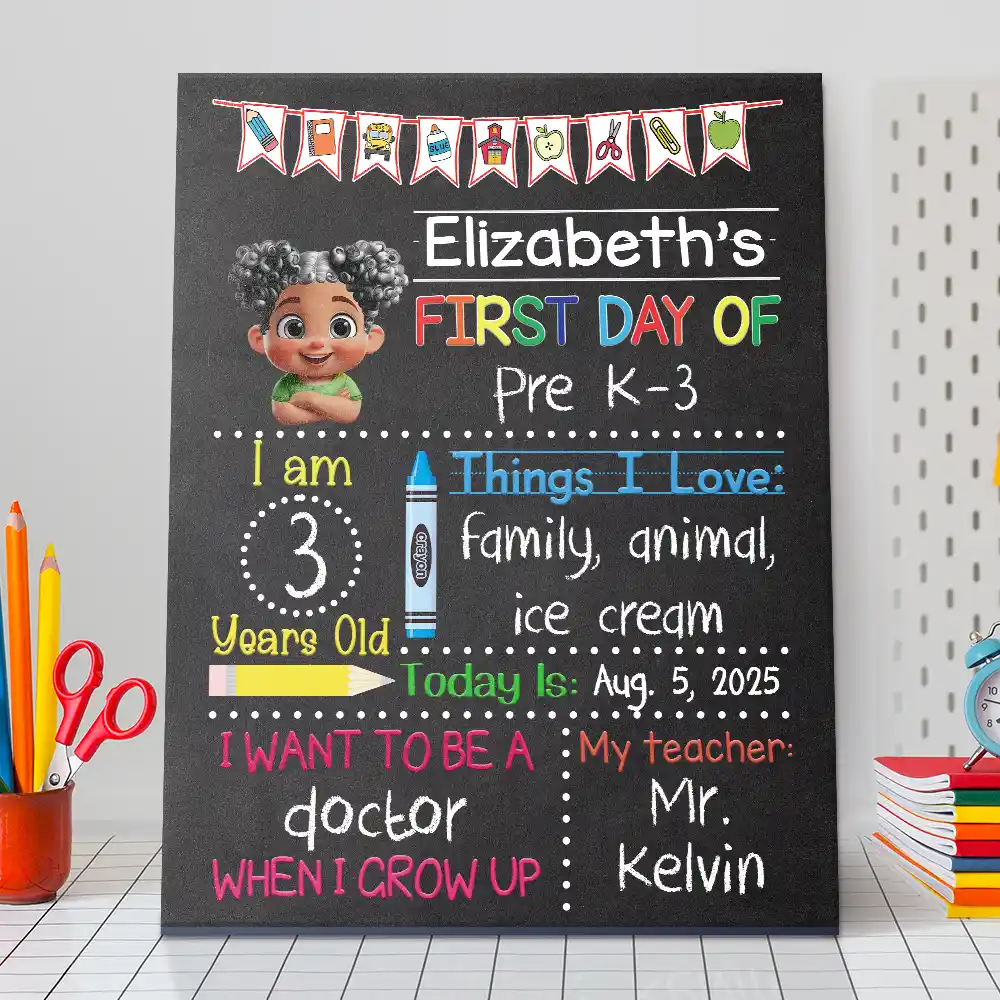 BLUE
Elizabeth's
FIRST DAY OF
Pre K-3
I am
3
Years Old
crayon
Things I Love:
family, animal,
ice cream
Today Is: Aug. 5, 2025
I WANT TO BE A
doctor
WHEN I GROW UP
My teacher:
Mr.
Kelvin
10
9
8